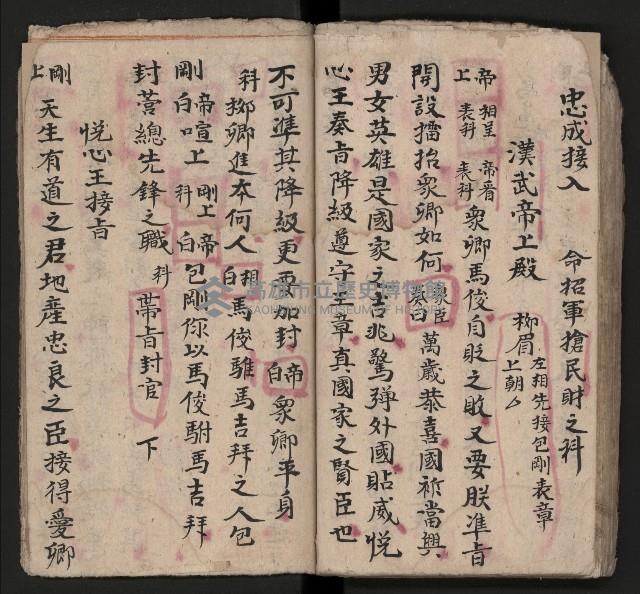 忠成接入 命招軍搶民財之科
漢武帝上殿 柳眉上朝厶 左相先接包剛表章
帝上 相呈表科 帝看表科 衆卿馬俊自貶之敗又要朕准旨
開設擂抬衆卿如何 衆臣奏曰 萬歲恭喜國祚當興
男女英雄是國家之吉兆驚殫外國貼威悅
心王奏旨降級遵守王章真國家之賢臣也
不可準其降級更要加封 帝白 衆卿平身
科 柳卿進夲何人 相白 馬俊騅馬吉拜之人包
剛 帝白 喧上 科 剛上 帝白 包剛你以馬俊駙馬吉拜
封营總先鋒之職 科 帶旨封官 下
悅心王接旨
剛上 天生有道之君地產忠良之臣接得愛卿
高雄市立歷史博物館
KAOHSIUNG MUSEUM OF HISTORY